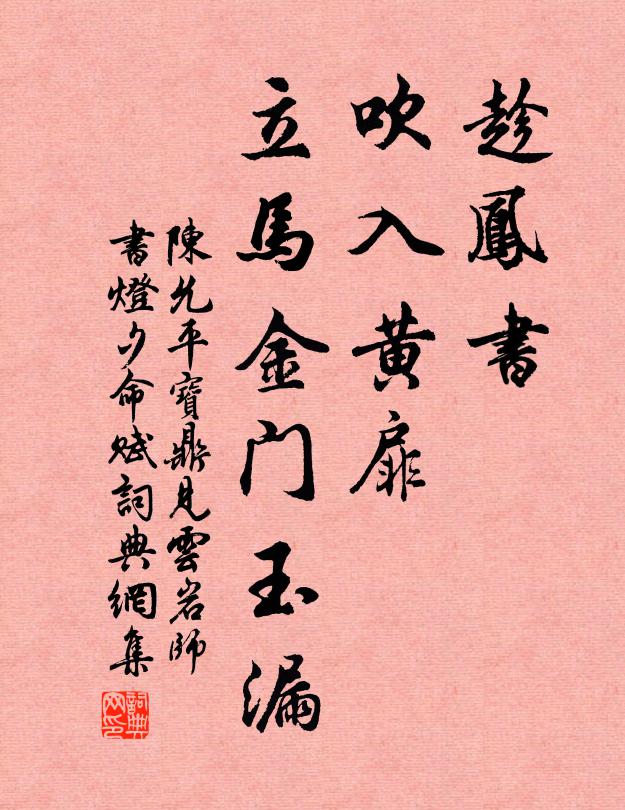 趁鳳書
吹入黄扉
立馬金门玉漏
陳允平寳鼎見雲岩師
書燈夕命赋詞典網集
詞典网印